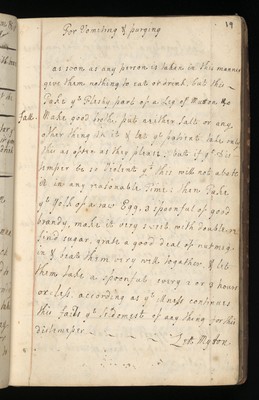 19
For Vomiting & purging
as soon as any person is taken in this manner
give them nothing to eate or drink, but this
Take yt fleshy part of a Leg of Mutton &
Make good broth, put neither salt or any
other thing in it & let yt patient take only
this as often as they please; but if yt
temper be so violent yt this will not abate
it in any reasonable time; then Take
yt yolk of a raw Egg, 3 spoonfuls of good
brandy, make it very sweet with double re
find sugar, grate a good deal of nutmeg
in & beate them very well together & let
them take a spoonfull every 1 or 2 hours
or less, according as yt illness continues
this fails yt seldomest of any thing for this
distemper